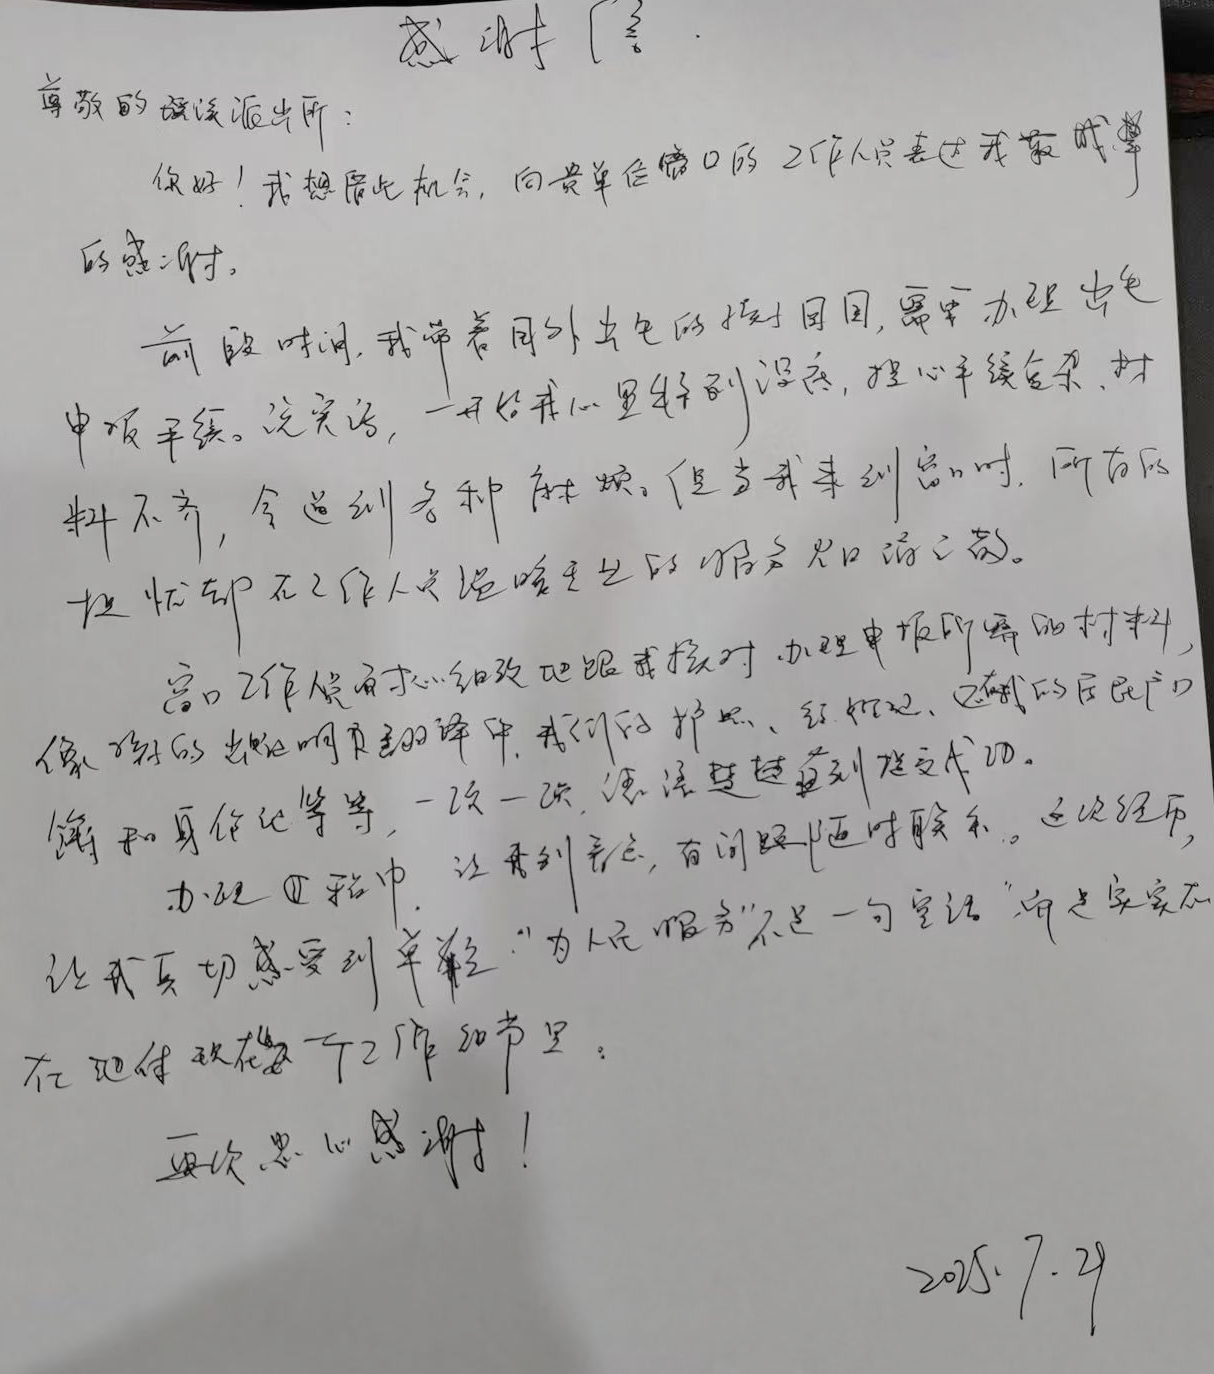 感谢信.
尊敬的 派出所：
你好！我想借此机会，向贵单位窗口的工作人员表达我最诚挚
的感谢。
前段时间，我带着国外出生的孩子回国，需要办理出生
申报手续。说实话，一开始我心里特别没底，担心手续复杂、材
料不齐，会遇到各种麻烦。但当我来到窗口时，所有的
担忧都在工作人员温暖专业的服务 消云散。
窗口工作人员有耐心细致地跟我核对办理申报所需的材料，
像孩子的出生证明及翻译件，我们的护照、结婚证、还有我的居民户口
簿和身份证等等，一项一项，清清楚楚直到提交成功。
办理过程中，让 到 ，有问题随时联系。这次经历，
让我真切感受到 “为人民服务”不是一句空话“而是实实在
在地体现在每一个工作细节里。
再次衷心感谢！
2025.7.29